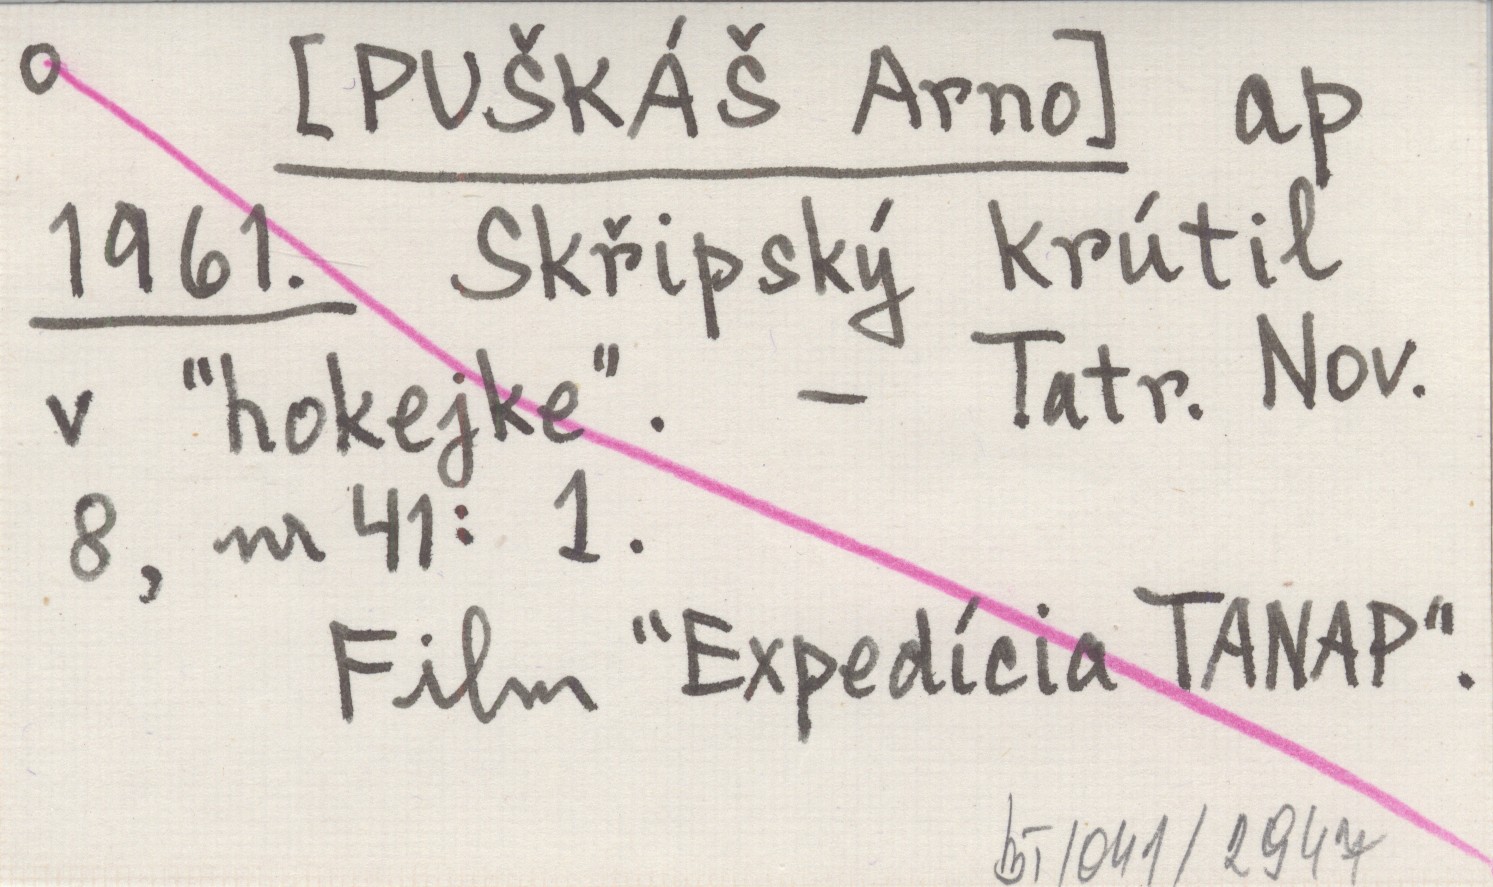 o [PUŠKÁŠ Arno] ap
1961. Skřipský krútil
v "hokejke". - Tatr. Nov.
8, nr 41: 1.
Film "Expedícia TANAP".
/041/2947